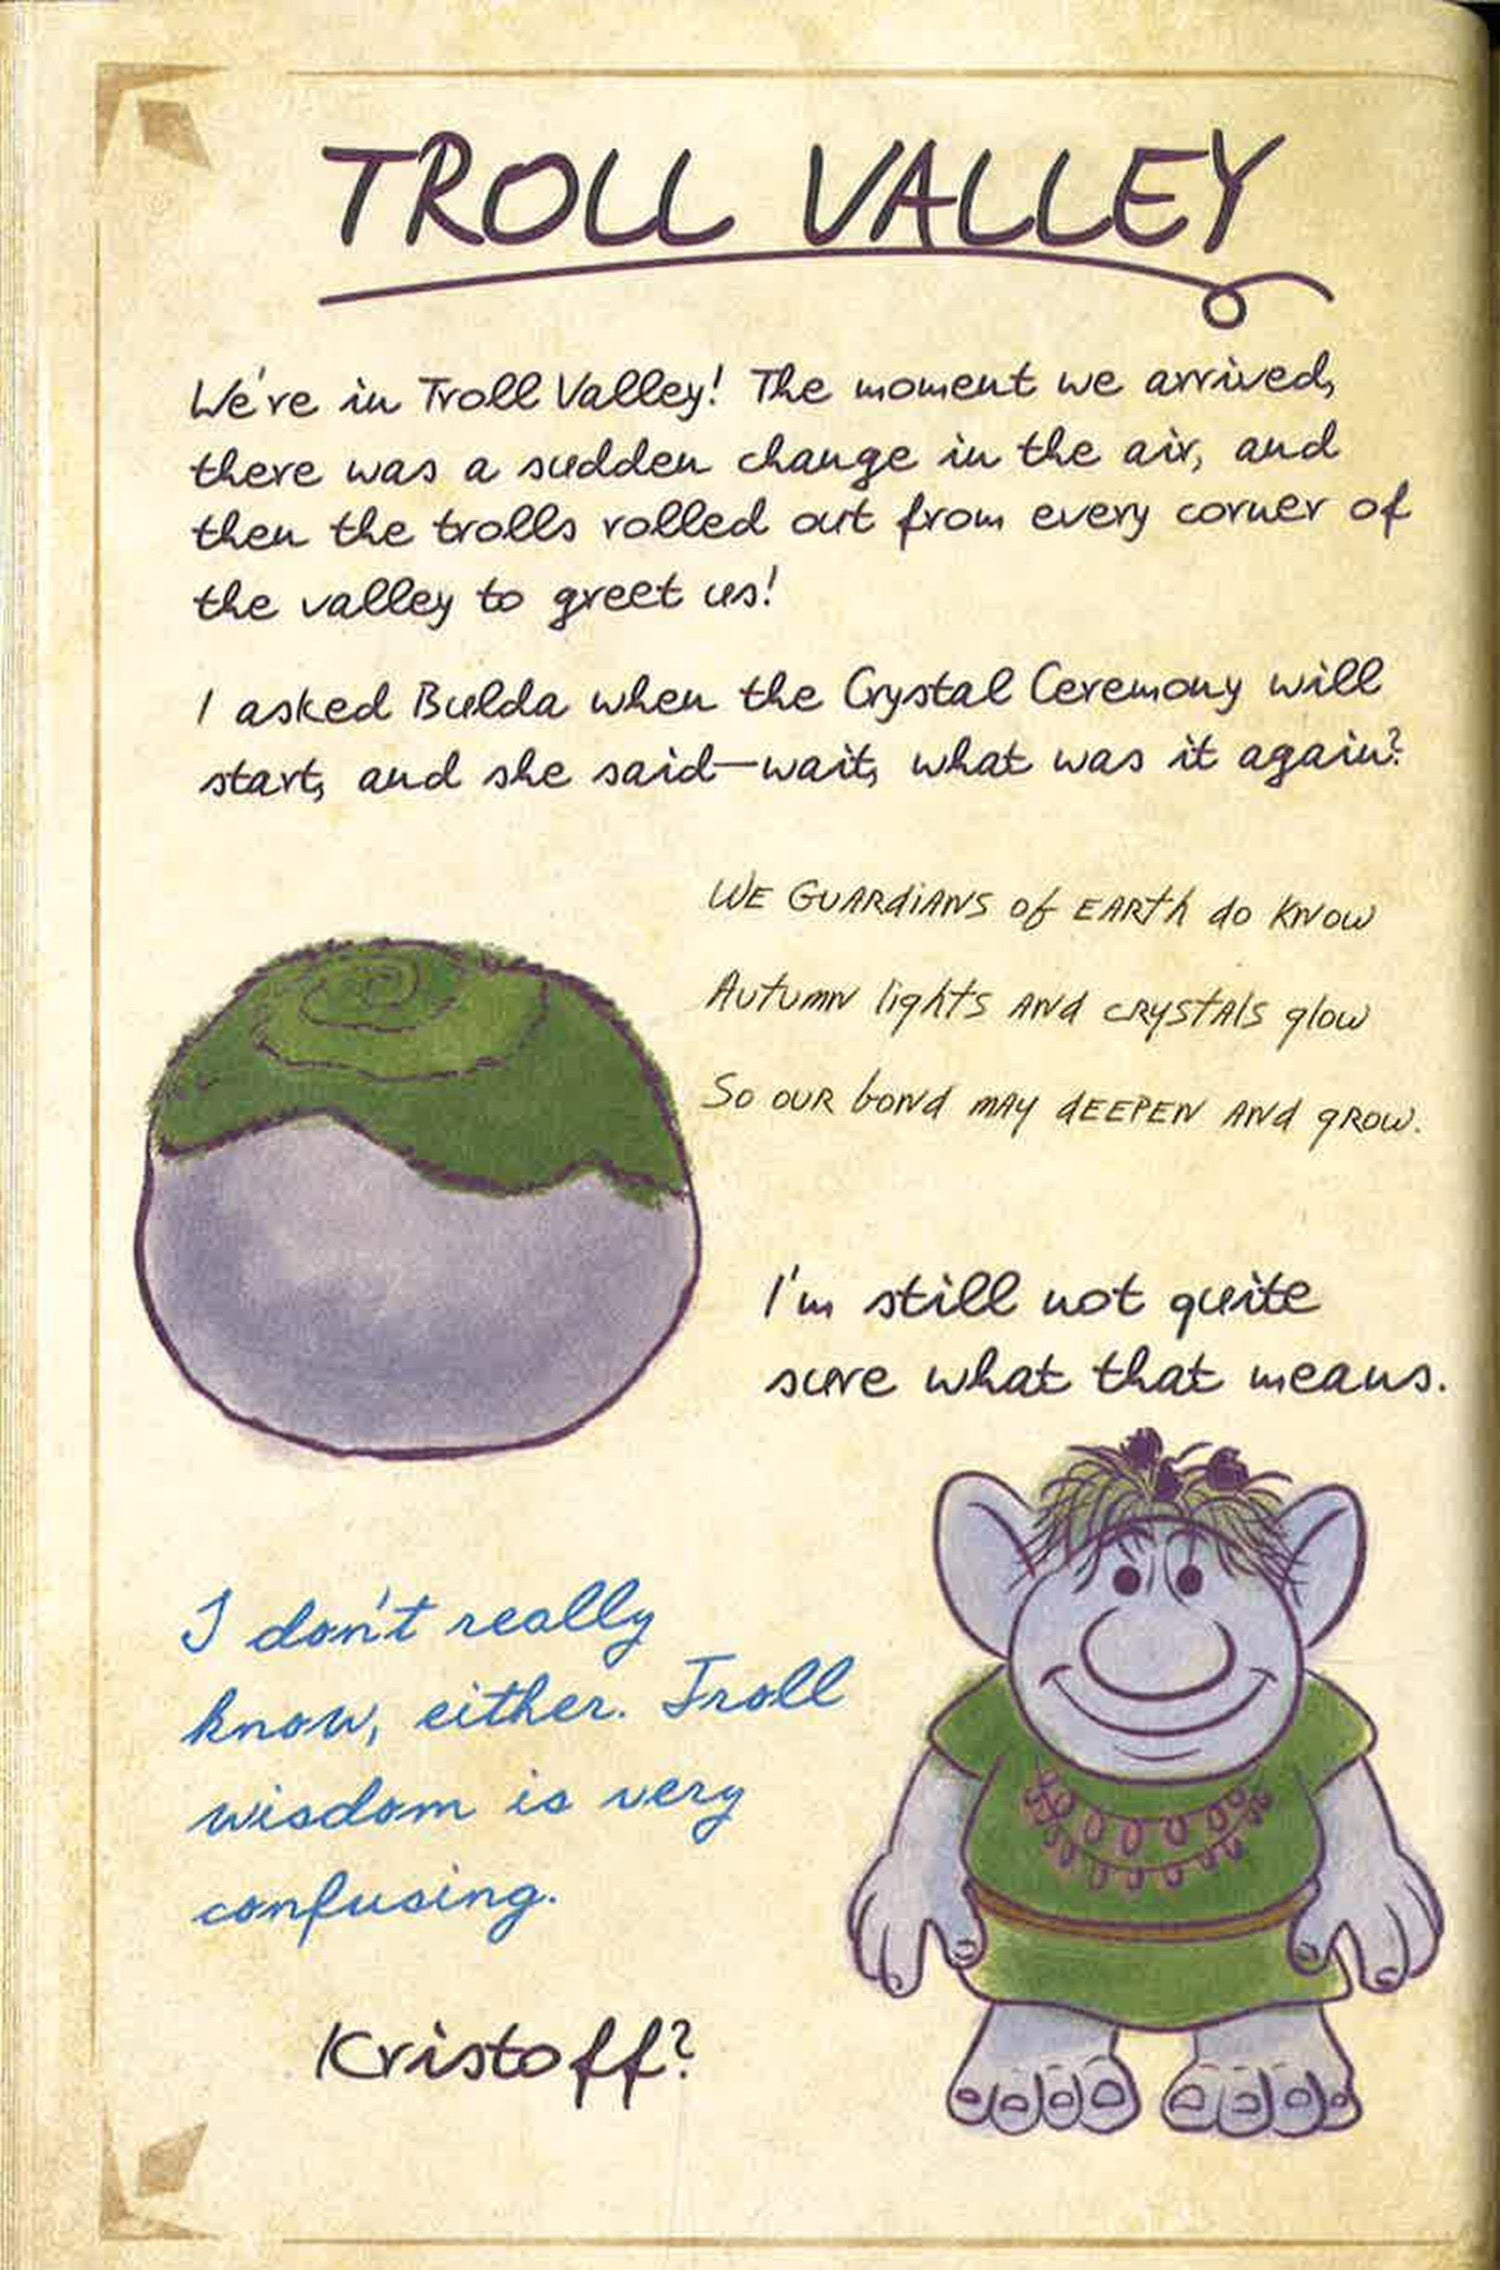 TROLL VALLEY
We're in Troll Valley! The moment we arrived,
there was a sudden change in the air, and
then the trolls rolled out from every corner of
the valley to greet us!
I asked Bulda when the Crystal Ceremony will
start, and she said—wait, what was it again?
WE GUARdiANS of EARth do KNow
Autumn lights ANd cRystAls glow
So ouR bond mAy dEEPEN ANd gRow.
I'm still not quite
sure what that means.
I don't really
know, either. Troll
wisdom is very
confusing.
Kristoff?